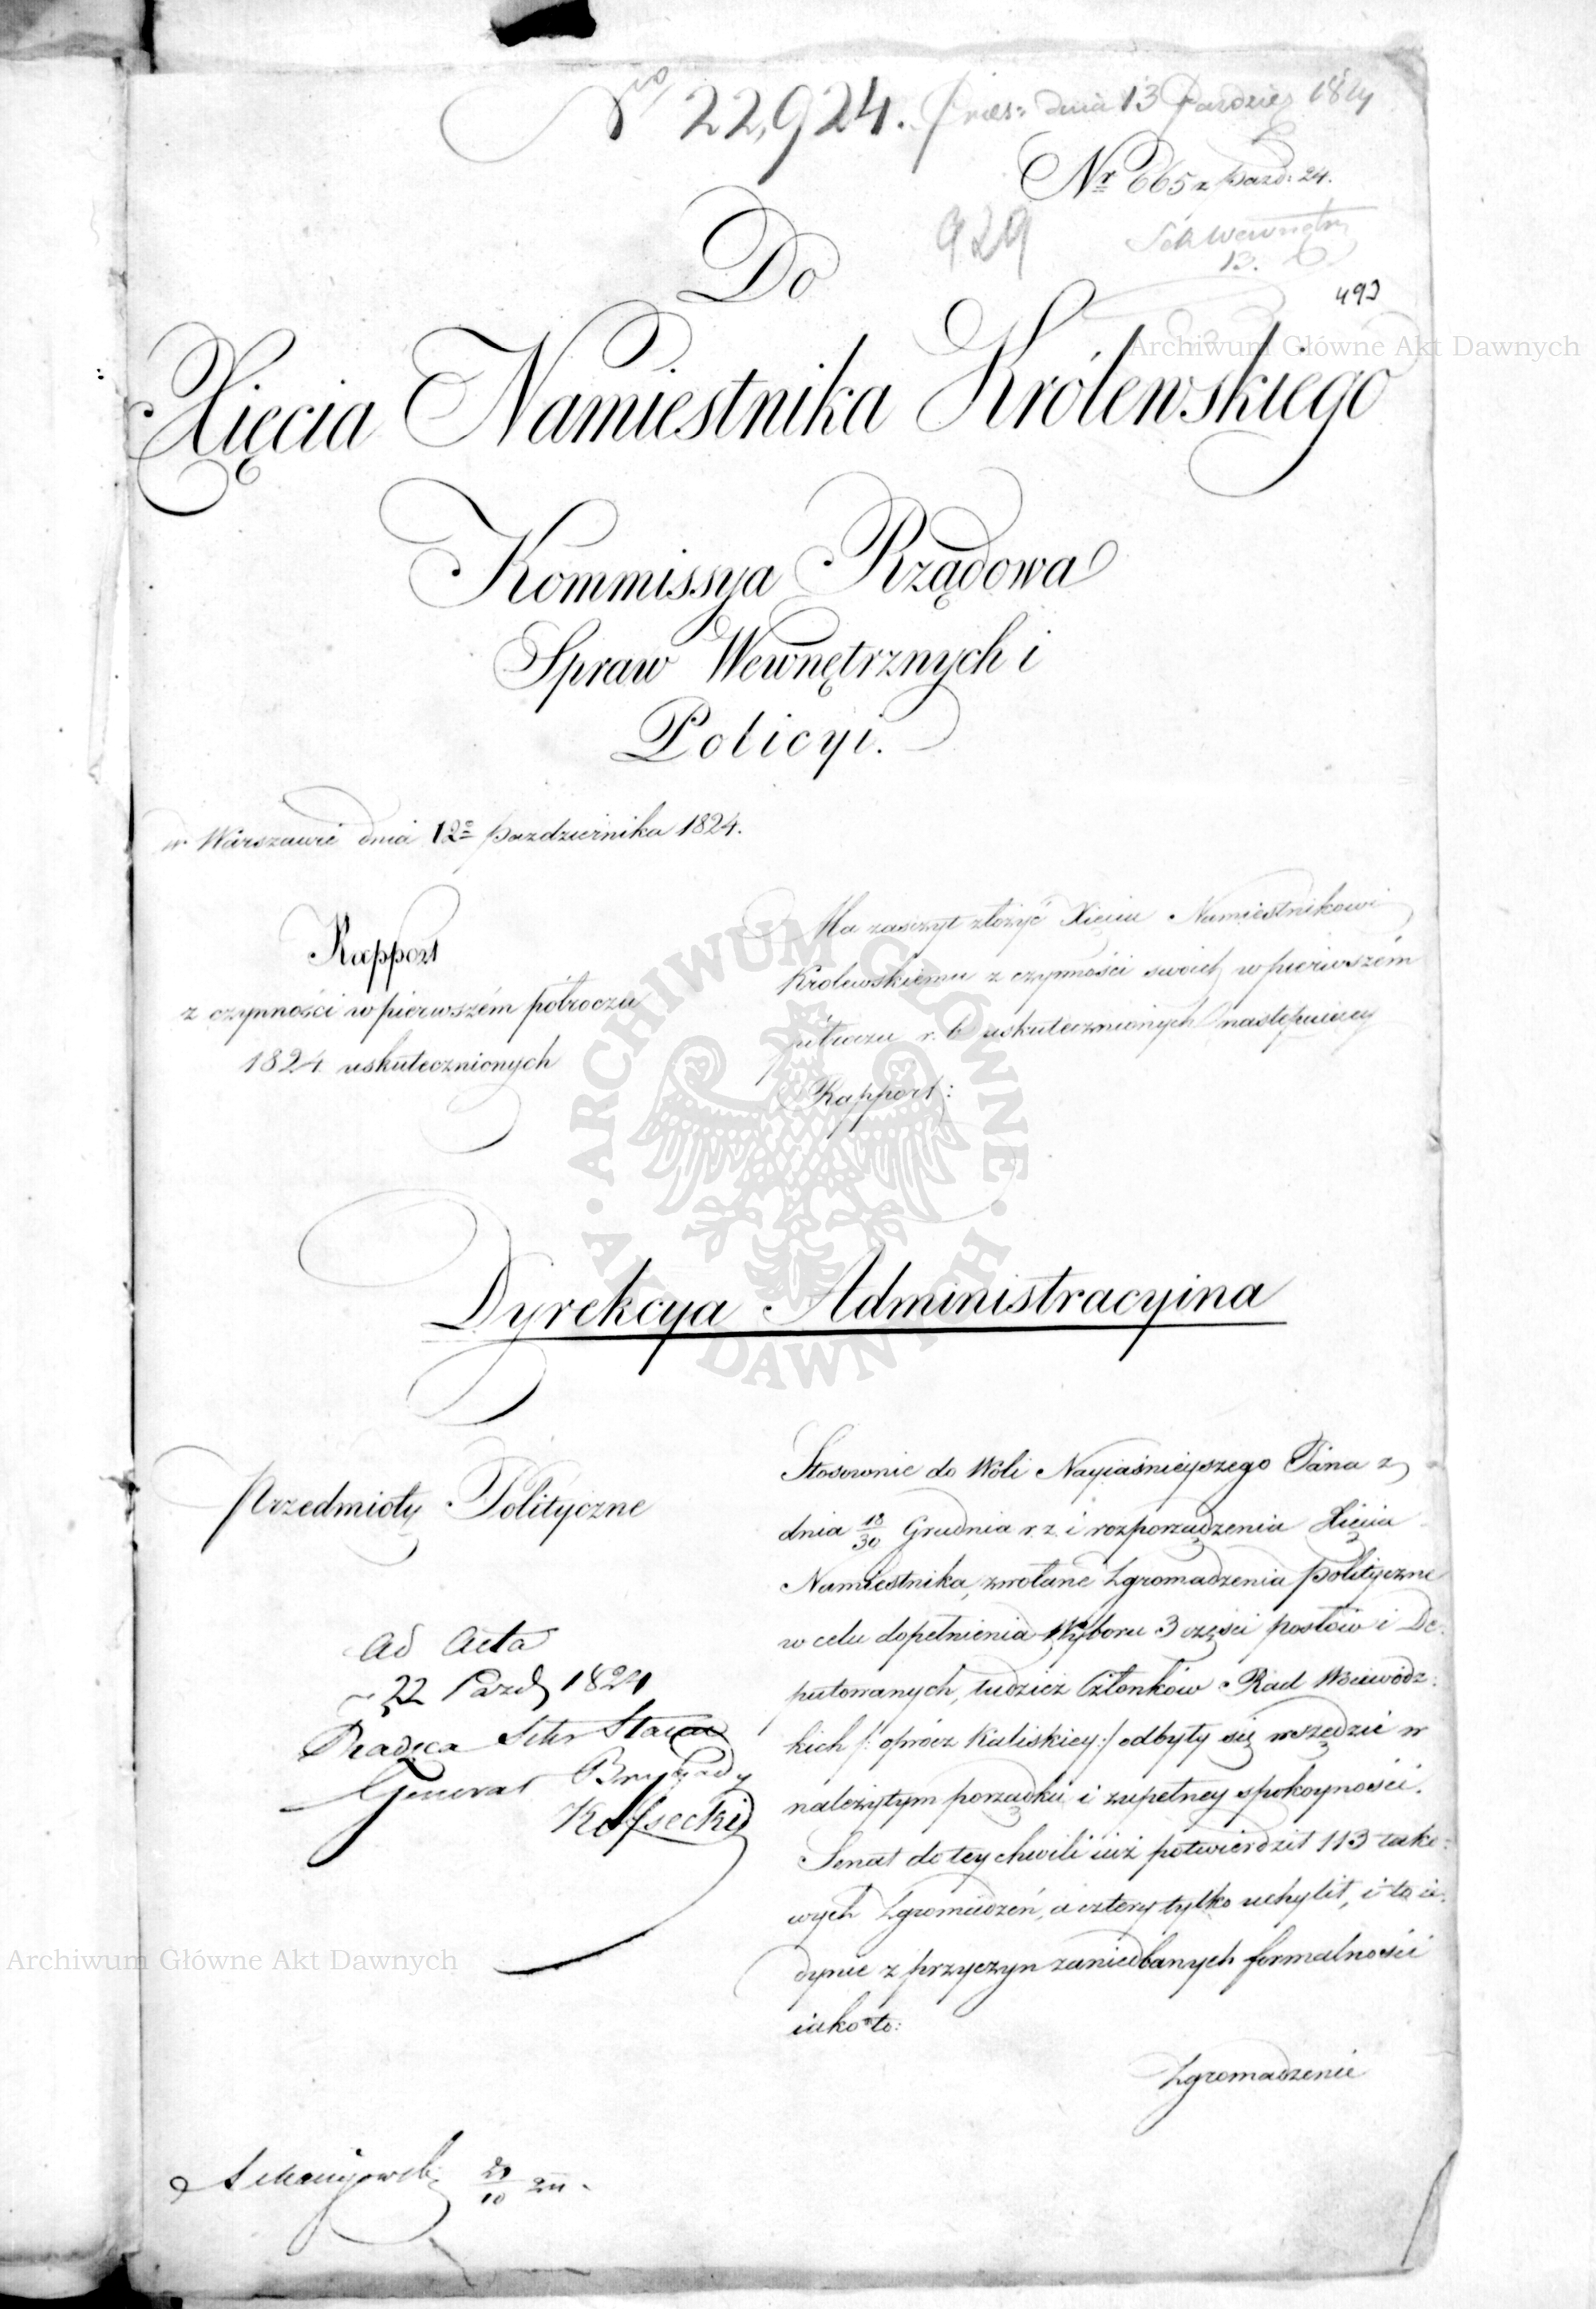 No 22,924. Pries: dnia 13 Pazdzier 1824
Nr 665 z pazd: 24.
929
Sek Wewnętrz
13.
493
Do
Xięcia Namiestnika Królewskiego
Archiwum Główne Akt Dawnych
Kommissya Rządowa
Spraw Wewnętrznych i
Policyi.
w Warszawie dnia 12go pazdziernika 1824.
Rapport
z czynności w pierwszém półroczu
1824 uskutecznionych
Ma zaszczyt złożyć Xięciu Namiestnikowi
Krolewskiemu z czynności swoich w pierwszém
półroczu r. b. uskutecznionych następuiący
Rapport:
ARCHIWUM GŁÓWNE · AKT DAWNYCH ·
Dyrekcya Administracyina
Przedmioty Polityczne
Ad Acta
22 Pazd 1824
Radzca Sekr Stanu
Generał Brygady
Kossecki
Stosownie do Woli Nayiaśnieyszego Pana z
dnia 18/30 Grudnia r. z. i rozporządzenia Xięcia
Namiestnika, zwołane Zgromadzenia polityczne
w celu dopełnienia Wyboru 3 części posłów i De-
putowanych, tudzież Członków Rad Woiewódz:
kich /: oprócz Kaliskiey:/ odbyły się wszędzie w
należytym porządku i zupełney spokoyności.
Senat do tey chwili iuż potwierdził 113 tako:
wych Zgromadzeń, a cztery tylko uchylił, i to ie:
dynie z przyczyn zaniedbanych formalności
iako to:
Zgromadzenie
Archiwum Główne Akt Dawnych